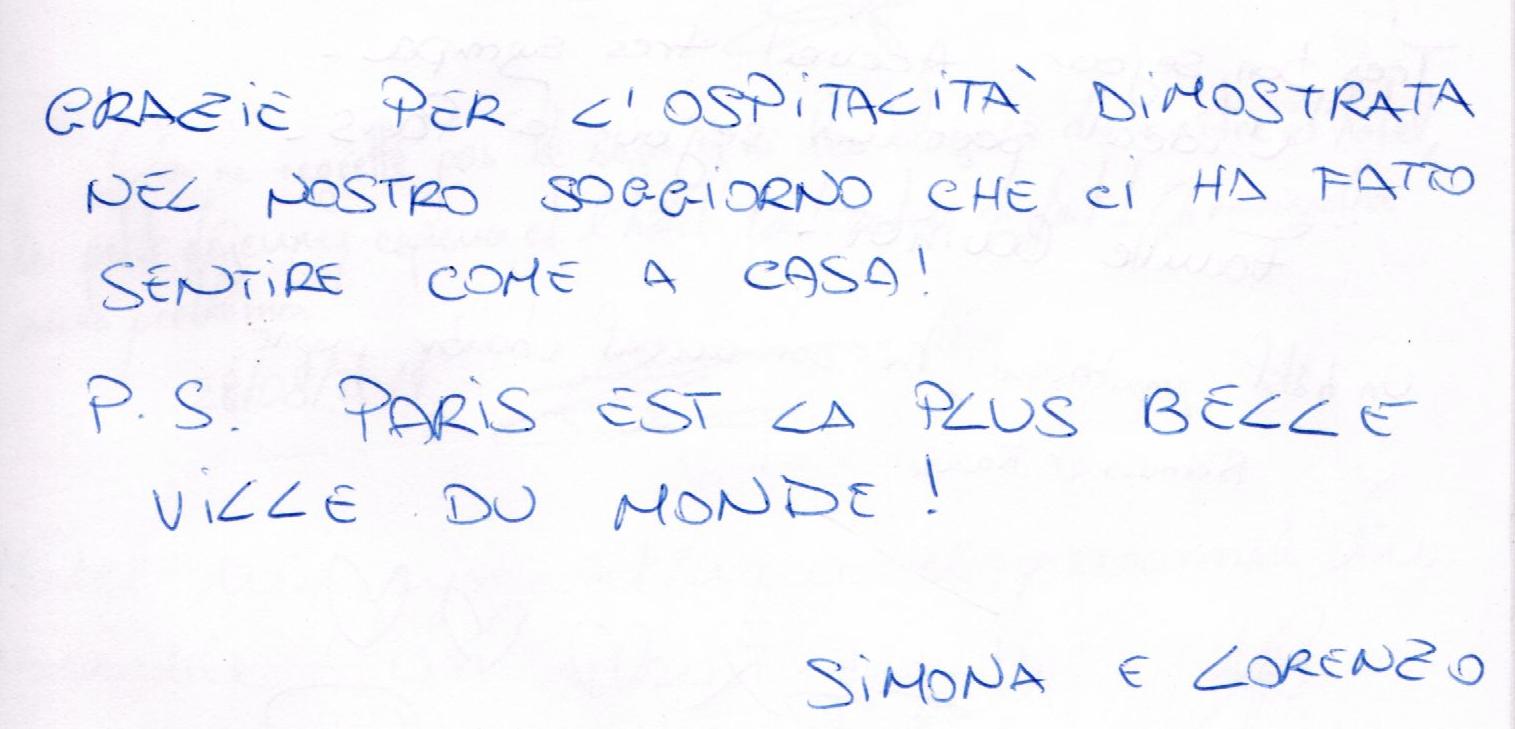 GRAZiE PER L'OSPiTALiTÀ DiMOSTRATA
NEL NOSTRO SOGGiORNO CHE Ci HA FATTO
SENTiRE COME A CASA!
P.S. PARiS EST LA PLUS BELLE
ViLLE DU MONDE!
SiMONA E LORENZO